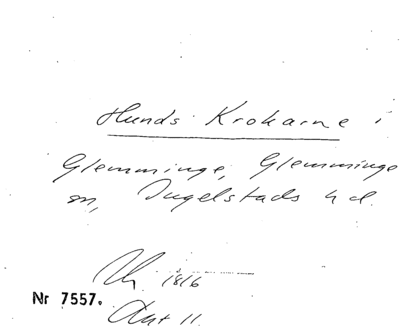 Hunds Krokarne i
Glemminge, Glemminge
sn, Ingelstads hd.
1816
Nr 7557.
Akt 11.